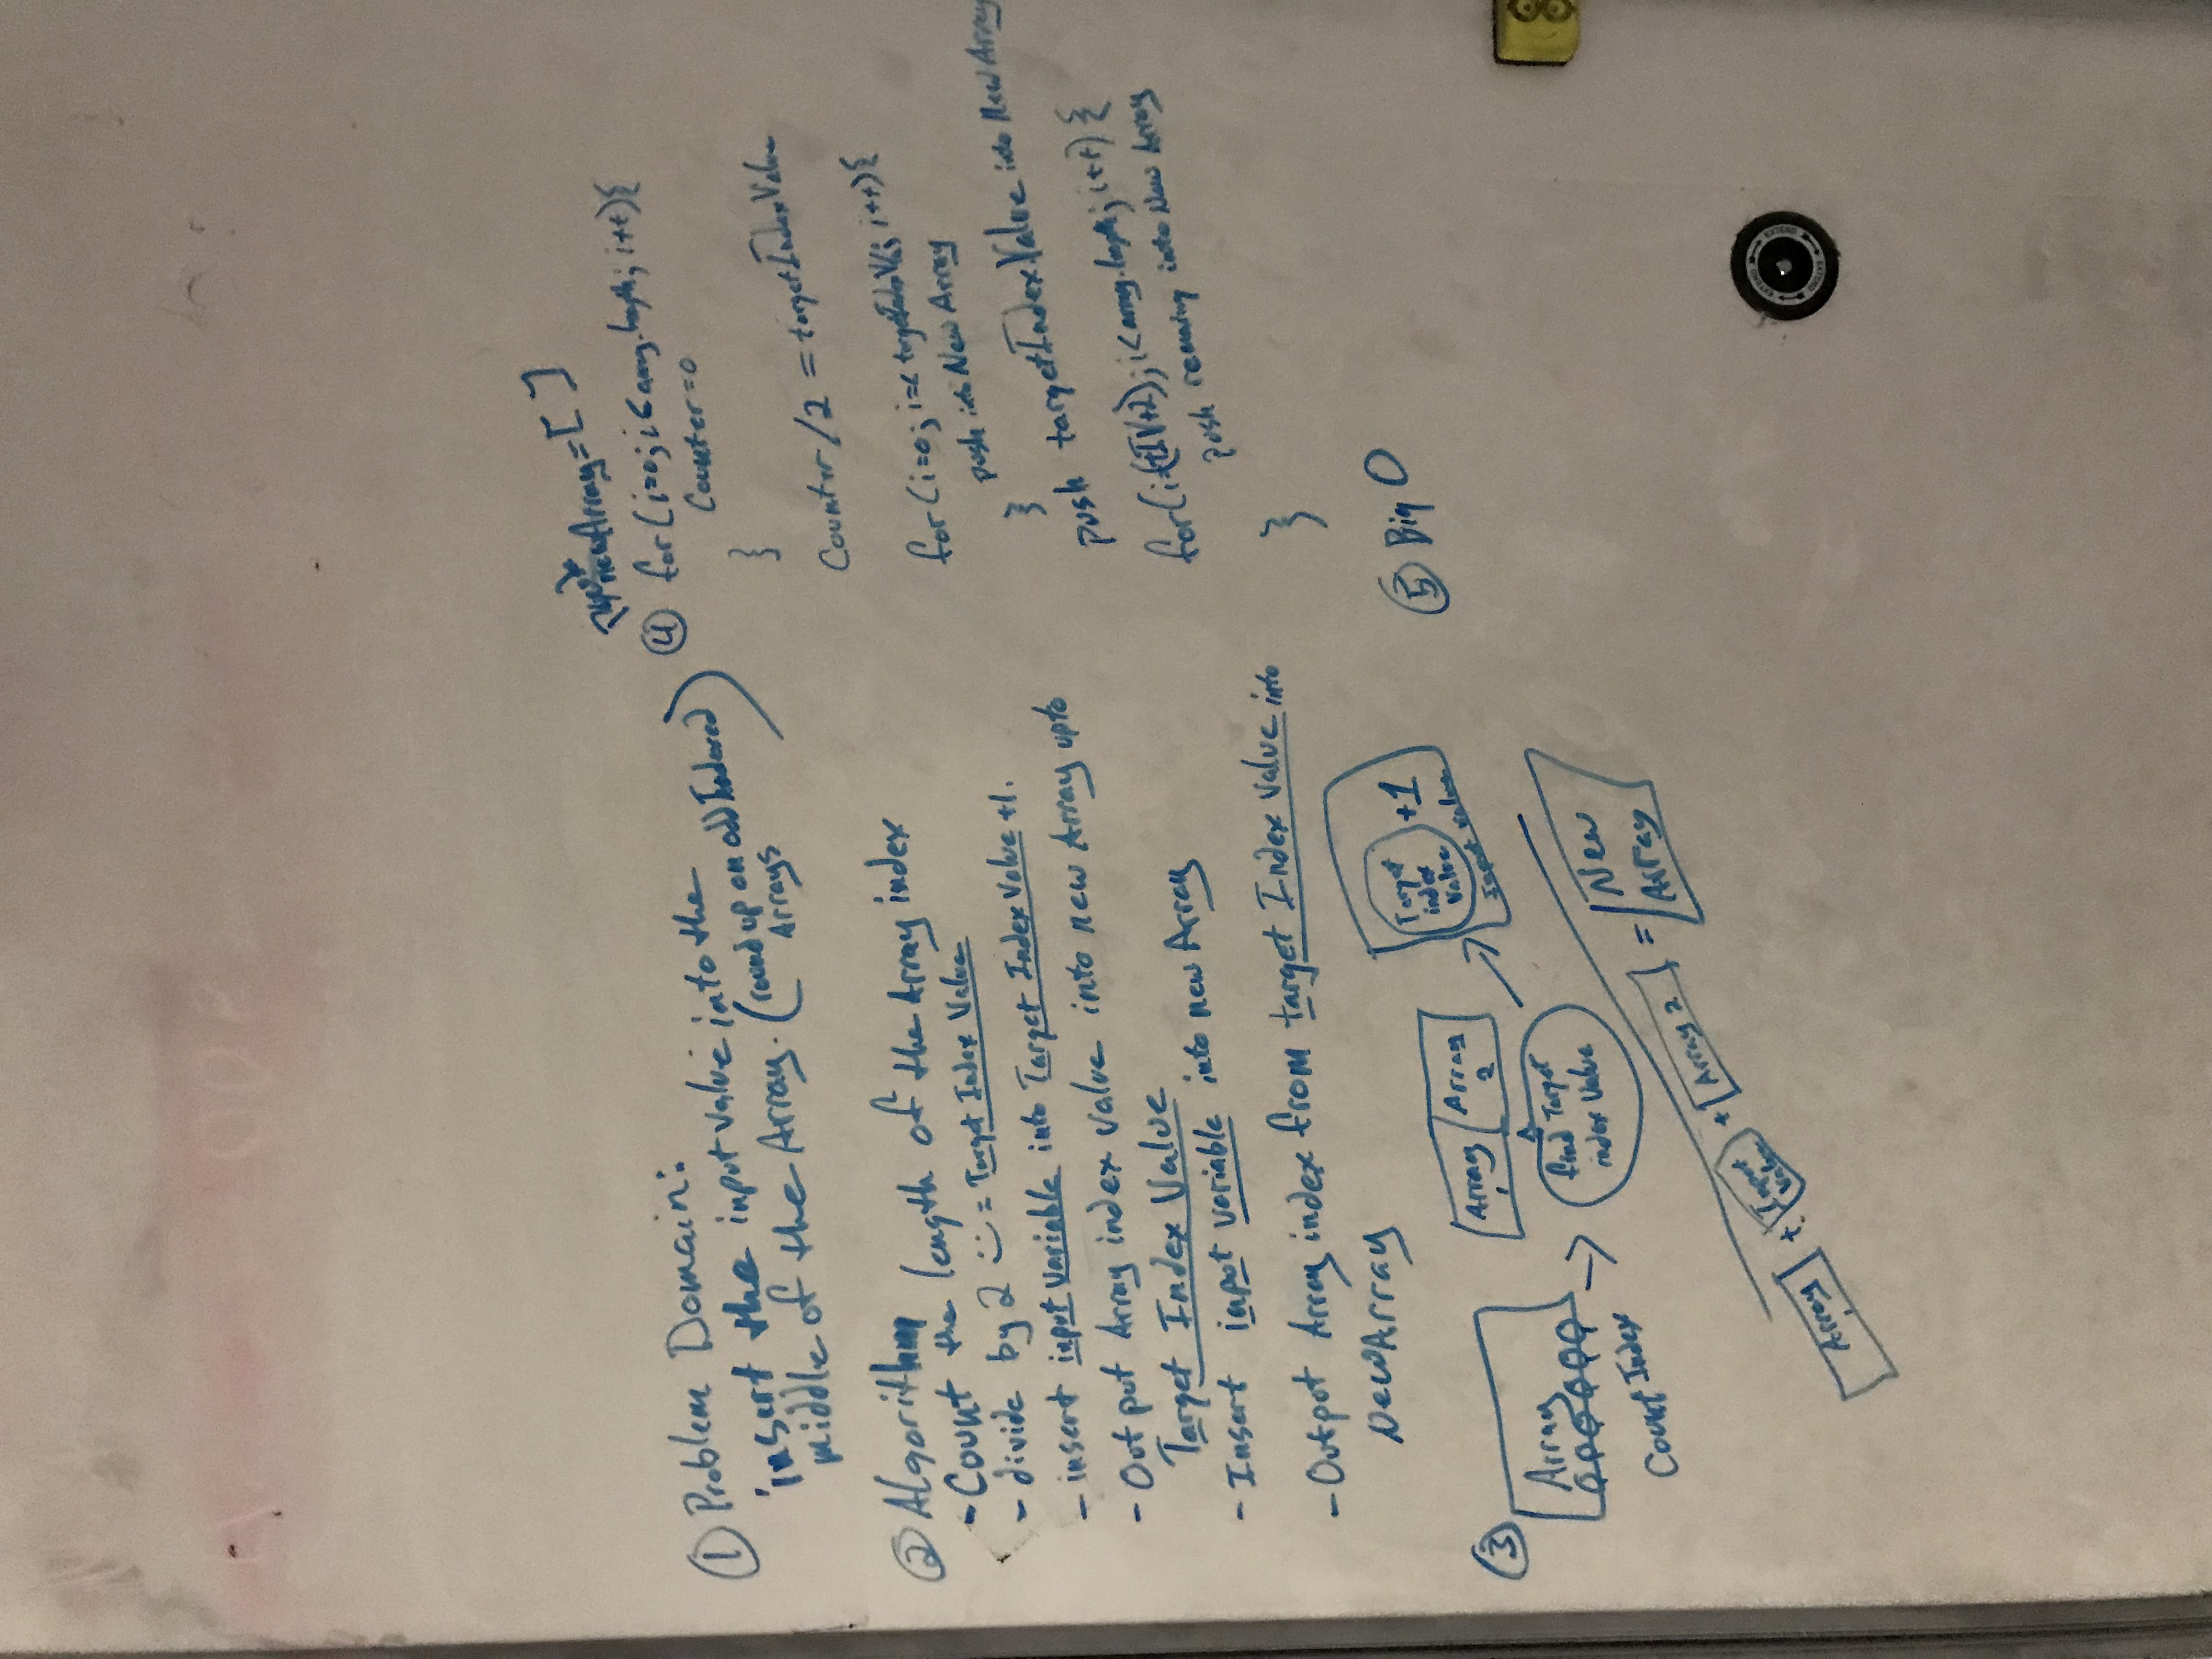 ① Problem Domain:
insert the input value into the
middle of the Array. (round up on odd Indexed
Arrays)
② Algorithm
- Count the length of the Array index
- divide by 2 = Target Index Value
- insert input variable into Target Index Value +1.
- Output Array index value into new Array upto
Target Index Value
- Insert input variable into new Array
- Output Array index from target Index Value into
New Array
③
Array
Count Index
Array
1
Array
2
find Target
index Value
Target
index
Value
+1
Input value
Array
1
+
Input
Value
+
Array 2
=
New
Array
newArray = [ ]
④ for (i=0; i < array.length; i++){
Counter=0
}
Counter /2 = targetIndexValue
for (i=0; i=<
i++){
push into New Array
}
push targetIndexValue into New Array
for(i=(tIV+2); i<array.length; i++) {
push remaing into New Array
}
⑤ Big O
EXTEND
EXTEND
EXTEND